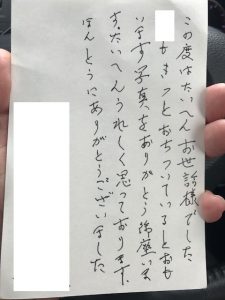 この度はたいへんお世話様でした
もきっとおちついているとおも
います写真をありがとう御座いま
すたいへんうれしく思っております
ほんとうにありがとうございました